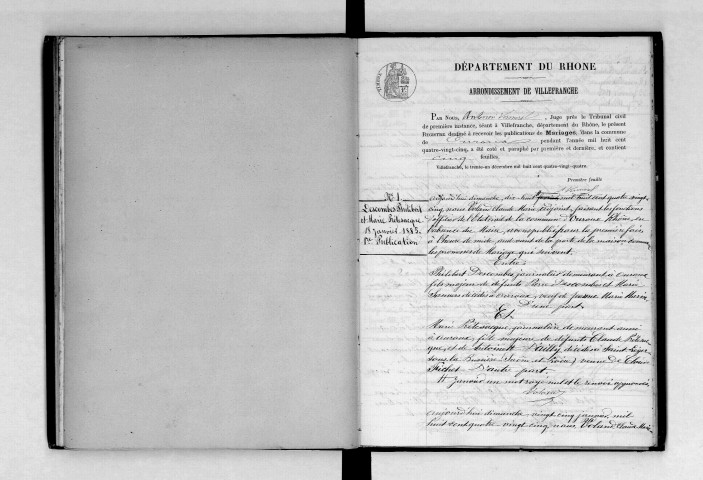 DÉPARTEMENT DU RHONE
ARRONDISSEMENT DE VILLEFRANCHE
PAR NOUS, Juge près le Tribunal civil
de première instance, séant à Villefranche, département du Rhône, le présent
REGISTRE destiné à recevoir les publications de Mariages, dans la commune
de pendant l'année mil huit cent
quatre-vingt-cinq, a été coté et paraphé par première et dernière, et contient
cinq feuilles.
Villefranche, le trente-un décembre mil huit cent quatre-vingt-quatre.
Première feuille
N° 1
Descombes Philibert
et Marie
18 janvier 1885
1re Publication
aujourd'hui dimanche, dix huit janvier mil huit cent quatre vingt
cinq, nous Volain Claude Marie, adjoint, faisant les fonctions
d'officier de l'Etat civil de la commune d' Rhône, en
l'absence du Maire, avons publié pour la première fois
à l'heure de midi, au devant de la porte de la maison commune
les promesses de Mariage qui suivent.
Entre
Philibert Descombes journalier demeurant à
fils majeur de défunts Pierre Descombes et Marie
décédés à veuf de Jeanne Marie
D'une part.
Et
Marie journalière demeurant
à fille majeure de défunts Claude
et de Antoinette décédés à Saint Léger
sous la Bussière (Saône et Loire) veuve de Claude
D'autre part.
janvier un mot rayé nul et le renvoi approuvés
aujourd'hui dimanche vingt cinq janvier, mil
huit cent quatre-vingt cinq, nous Volain, Claude Marie